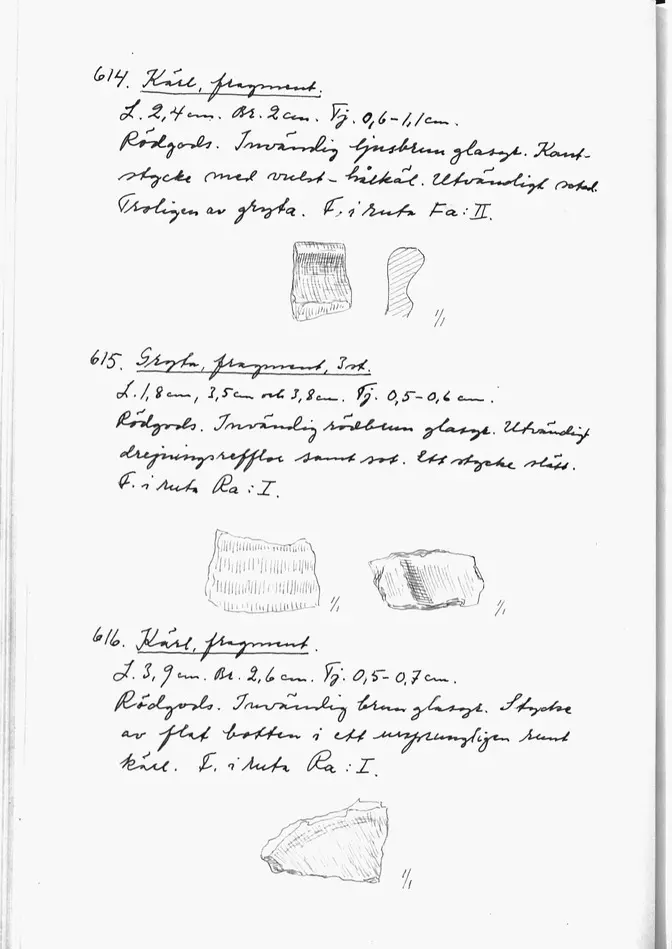 614. Kärl, fragment.
L. 2,4 cm. Br. 2 cm. Tj. 0,6-1,1 cm.
Rödgods. Invändig ljusbrun glasyr. Kant-
stycke med vulst-hålkäl. Utvändigt sotad.
Troligen av gryta. F. i ruta Fa: II.
1/1
615. Gryta, fragment, 3 st.
L. 1,8 cm, 3,5 cm och 3,8 cm. Tj. 0,5-0,6 cm.
Rödgods. Invändig rödbrun glasyr. Utvändigt
drejningsrefflor samt sot. Ett stycke slätt.
F. i ruta Ra: I.
1/1 1/1
616. Kärl, fragment.
L. 3,9 cm. Br. 2,6 cm. Tj. 0,5-0,7 cm.
Rödgods. Invändig brun glasyr. Stycke
av flat botten i ett ursprungligen runt
kärl. F. i ruta Ra: I.
1/1